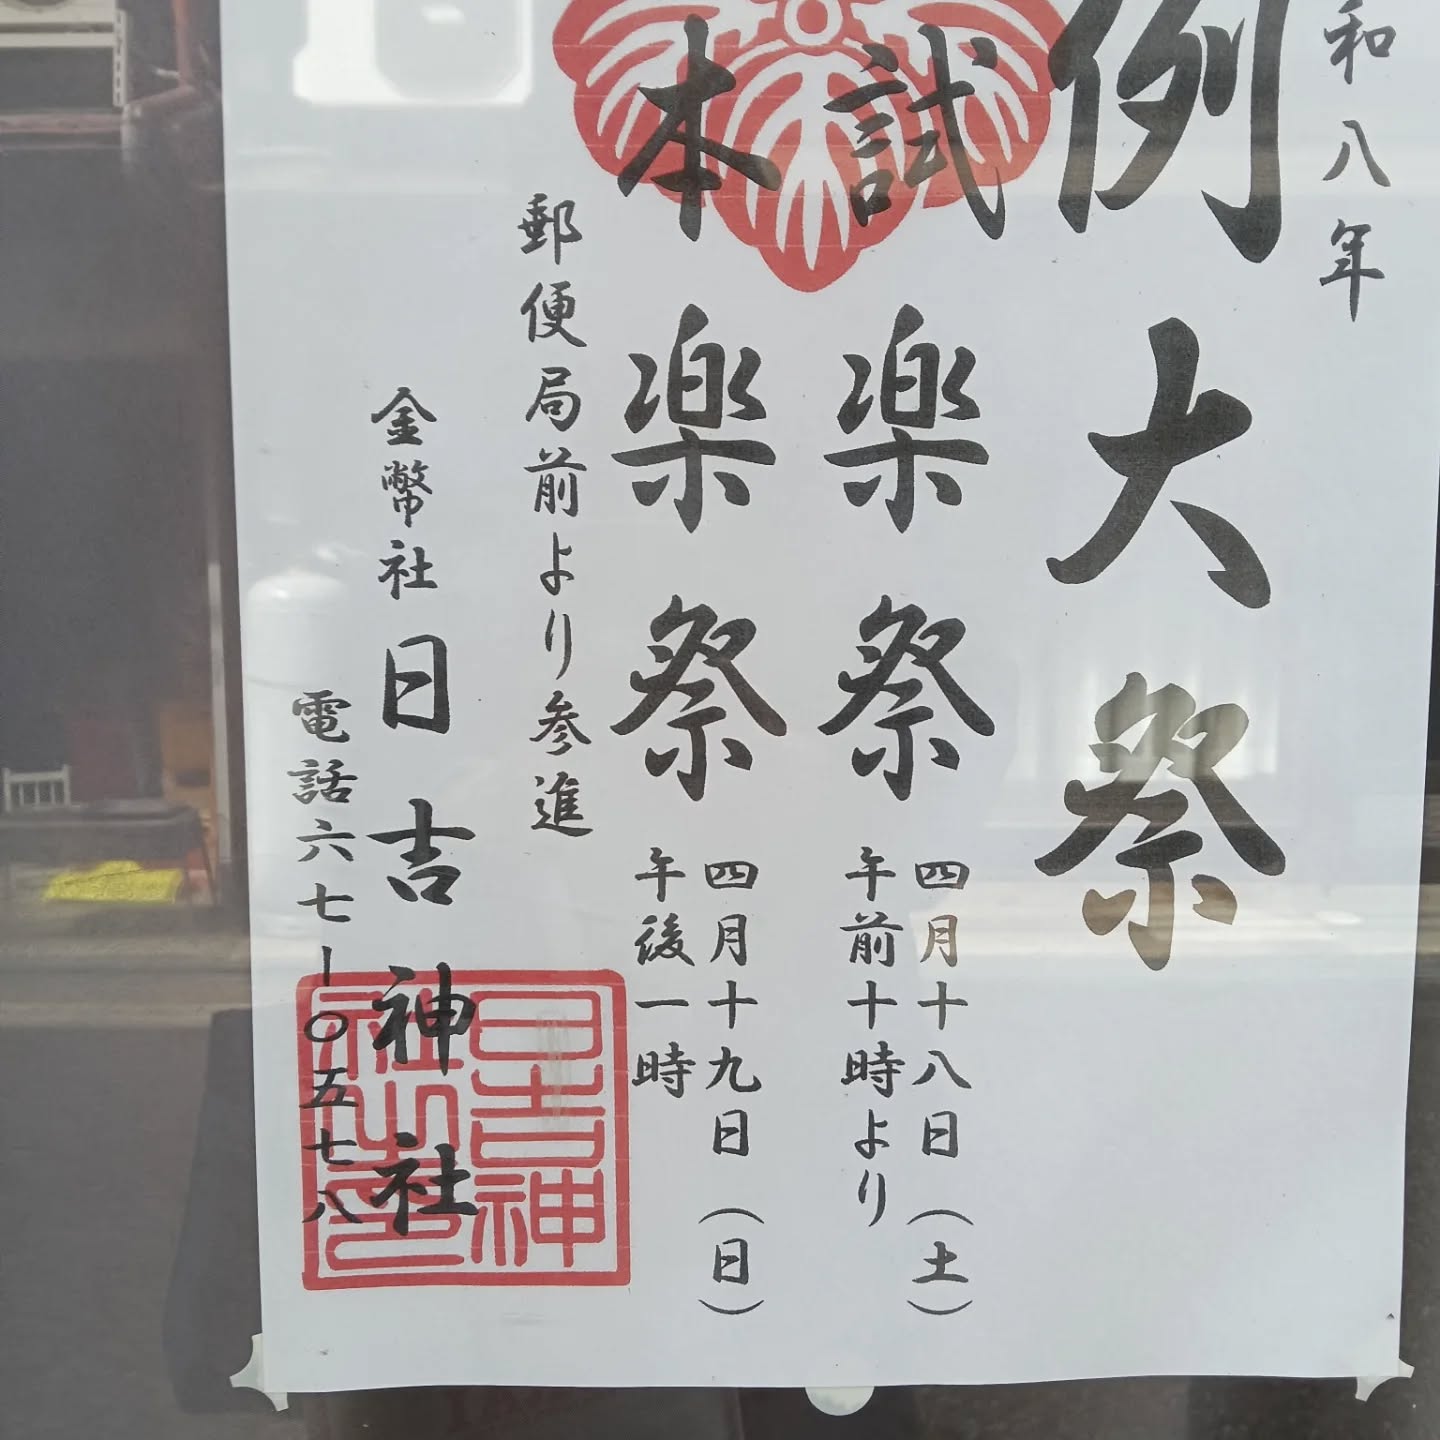 和八年
例大祭
試楽祭
四月十八日（土）
午前十時より
本楽祭
四月十九日（日）
午後一時
郵便局前より参進
金幣社 日吉神社
電話六七-〇五七八
日吉神
社之印